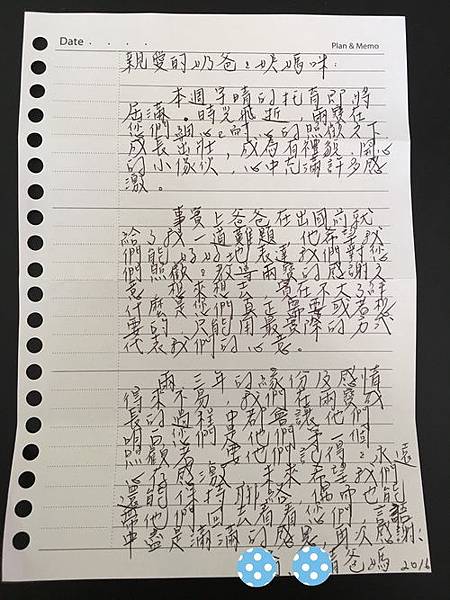 Date . . . .
Plan & Memo
親愛的奶爸、娛媽咪:
本週宇晴的托育即將
屆滿。時光飛逝,兩寶在
您們細心、耐心的照顧之下
成長出壯,成為有禮貌、開心
的小傢伙,心中充滿許多感
激。
事實上爸爸在出國前就
給了我一道難題,他希望我
們能好好地表達我們對您
們照顧、教導兩寶的感謝之
意。想來想去,實在不太了解
什麼是您們真正需要或者想
要的,只能用最實際的方式
代表我們的心意。
兩三年的緣份及感情
得來不易,我們在兩寶成
長的過程中都會讓他們
明白您們是他們第一個
照顧者,他們記得、永遠
心存感激。未來希望我們
還能保持聯絡,偶而也能
帶他們回去看看您們,言語
中盡是滿滿的感恩,再次感謝!
晴爸媽 2016